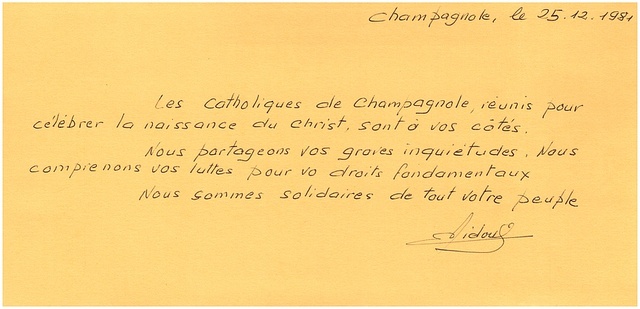 Champagnole, le 25.12.1981
Les catholiques de Champagnole, réunis pour
célébrer la naissance du Christ, sont à vos côtés.
Nous partageons vos graves inquiétudes. Nous
comprenons vos luttes pour vo droits fondamentaux
Nous sommes solidaires de tout votre peuple